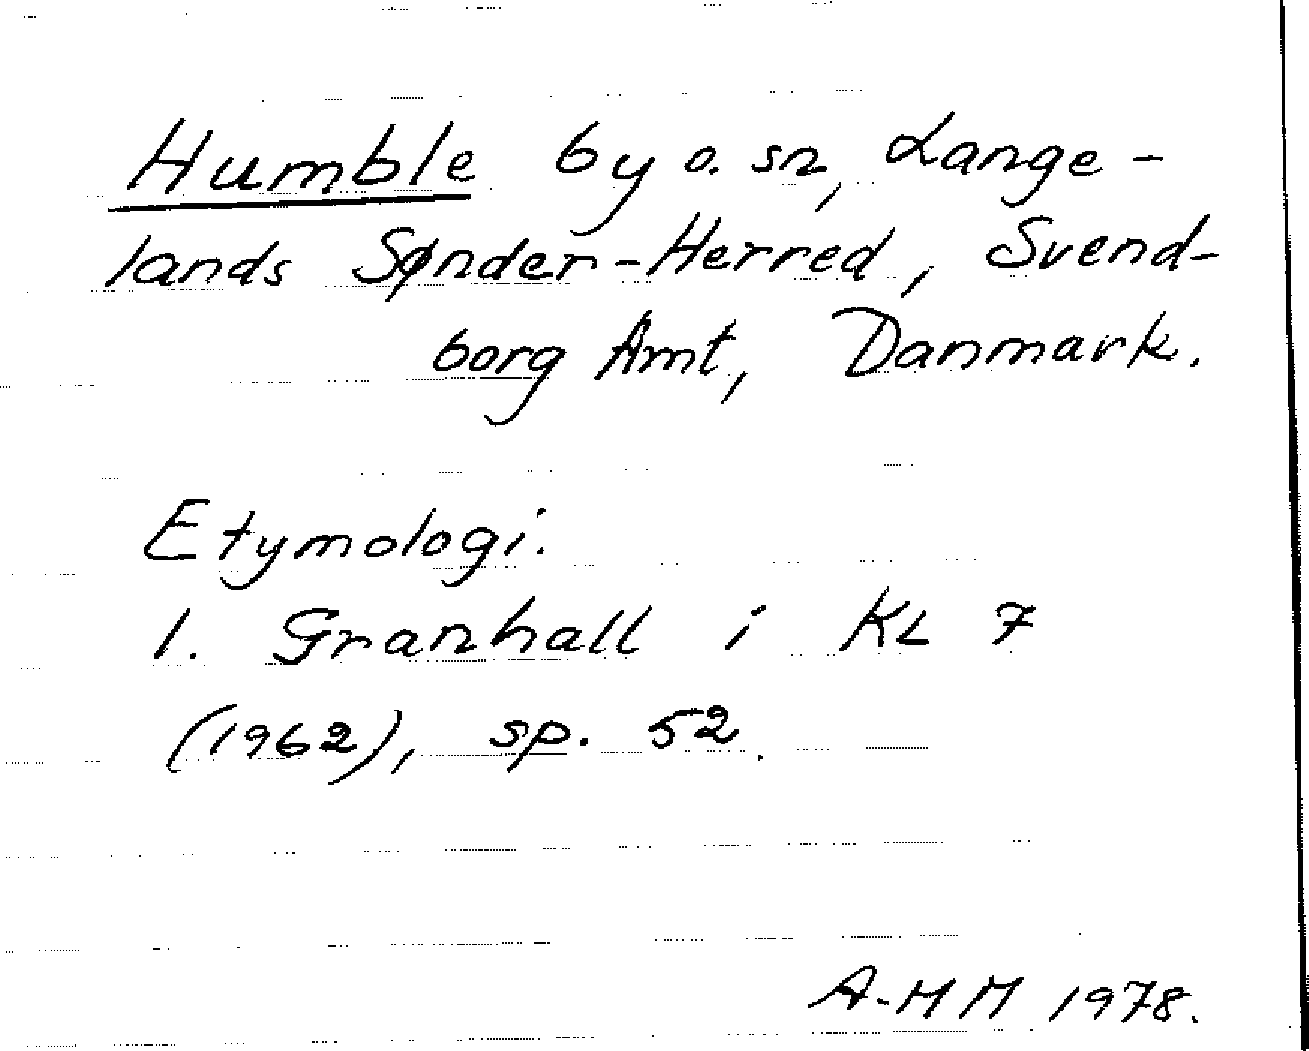 Humble by o. sn, Lange-
lands Sønder-Herred, Svend-
borg Amt, Danmark.
Etymologi.
1. Granhall i KL 7
(1962), sp. 52.
A-MM 1978.